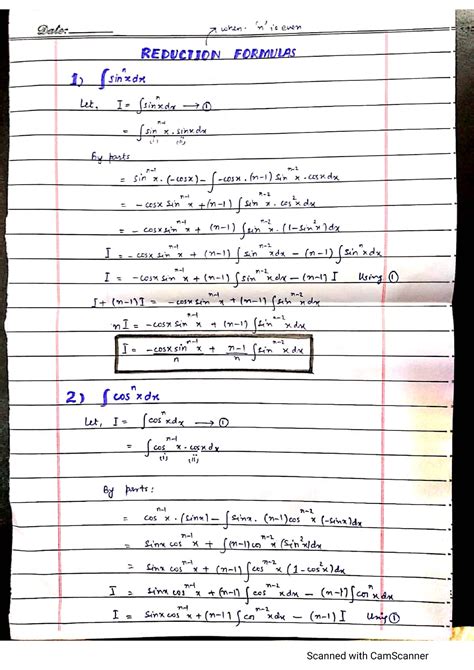 Date:
when 'n' is even
REDUCTION FORMULAS
1) ∫sinⁿxdx
Let, I = ∫sinⁿxdx → ①
= ∫sinⁿ⁻¹x . sinxdx
(i) (ii)
By parts
= sinⁿ⁻¹x . (-cosx) - ∫-cosx . (n-1) sinⁿ⁻²x . cosxdx
= -cosx sinⁿ⁻¹x + (n-1) ∫sinⁿ⁻²x . cos²xdx
= -cosx sinⁿ⁻¹x + (n-1) ∫sinⁿ⁻²x . (1-sin²x)dx
I = -cosx sinⁿ⁻¹x + (n-1) ∫sinⁿ⁻²xdx - (n-1) ∫sinⁿxdx
I = -cosx sinⁿ⁻¹x + (n-1) ∫sinⁿ⁻²xdx - (n-1) I Using ①
I + (n-1)I = -cosx sinⁿ⁻¹x + (n-1) ∫sinⁿ⁻²xdx
nI = -cosx sinⁿ⁻¹x + (n-1) ∫sinⁿ⁻²xdx
I = -cosx sinⁿ⁻¹x/n + n-1/n ∫sinⁿ⁻²xdx
2) ∫cosⁿxdx
Let, I = ∫cosⁿxdx → ①
= ∫cosⁿ⁻¹x . cosxdx
(i) (ii)
By parts:
= cosⁿ⁻¹x . (sinx) - ∫sinx . (n-1)cosⁿ⁻²x (-sinx)dx
= sinx cosⁿ⁻¹x + ∫(n-1)cosⁿ⁻²x (sin²x)dx
= sinx cosⁿ⁻¹x + (n-1) ∫cosⁿ⁻²x (1-cos²x)dx
I = sinx cosⁿ⁻¹x + (n-1) ∫cosⁿ⁻²xdx - (n-1) ∫cosⁿxdx
I = sinx cosⁿ⁻¹x + (n-1) ∫cosⁿ⁻²xdx - (n-1) I Using ①
Scanned with CamScanner